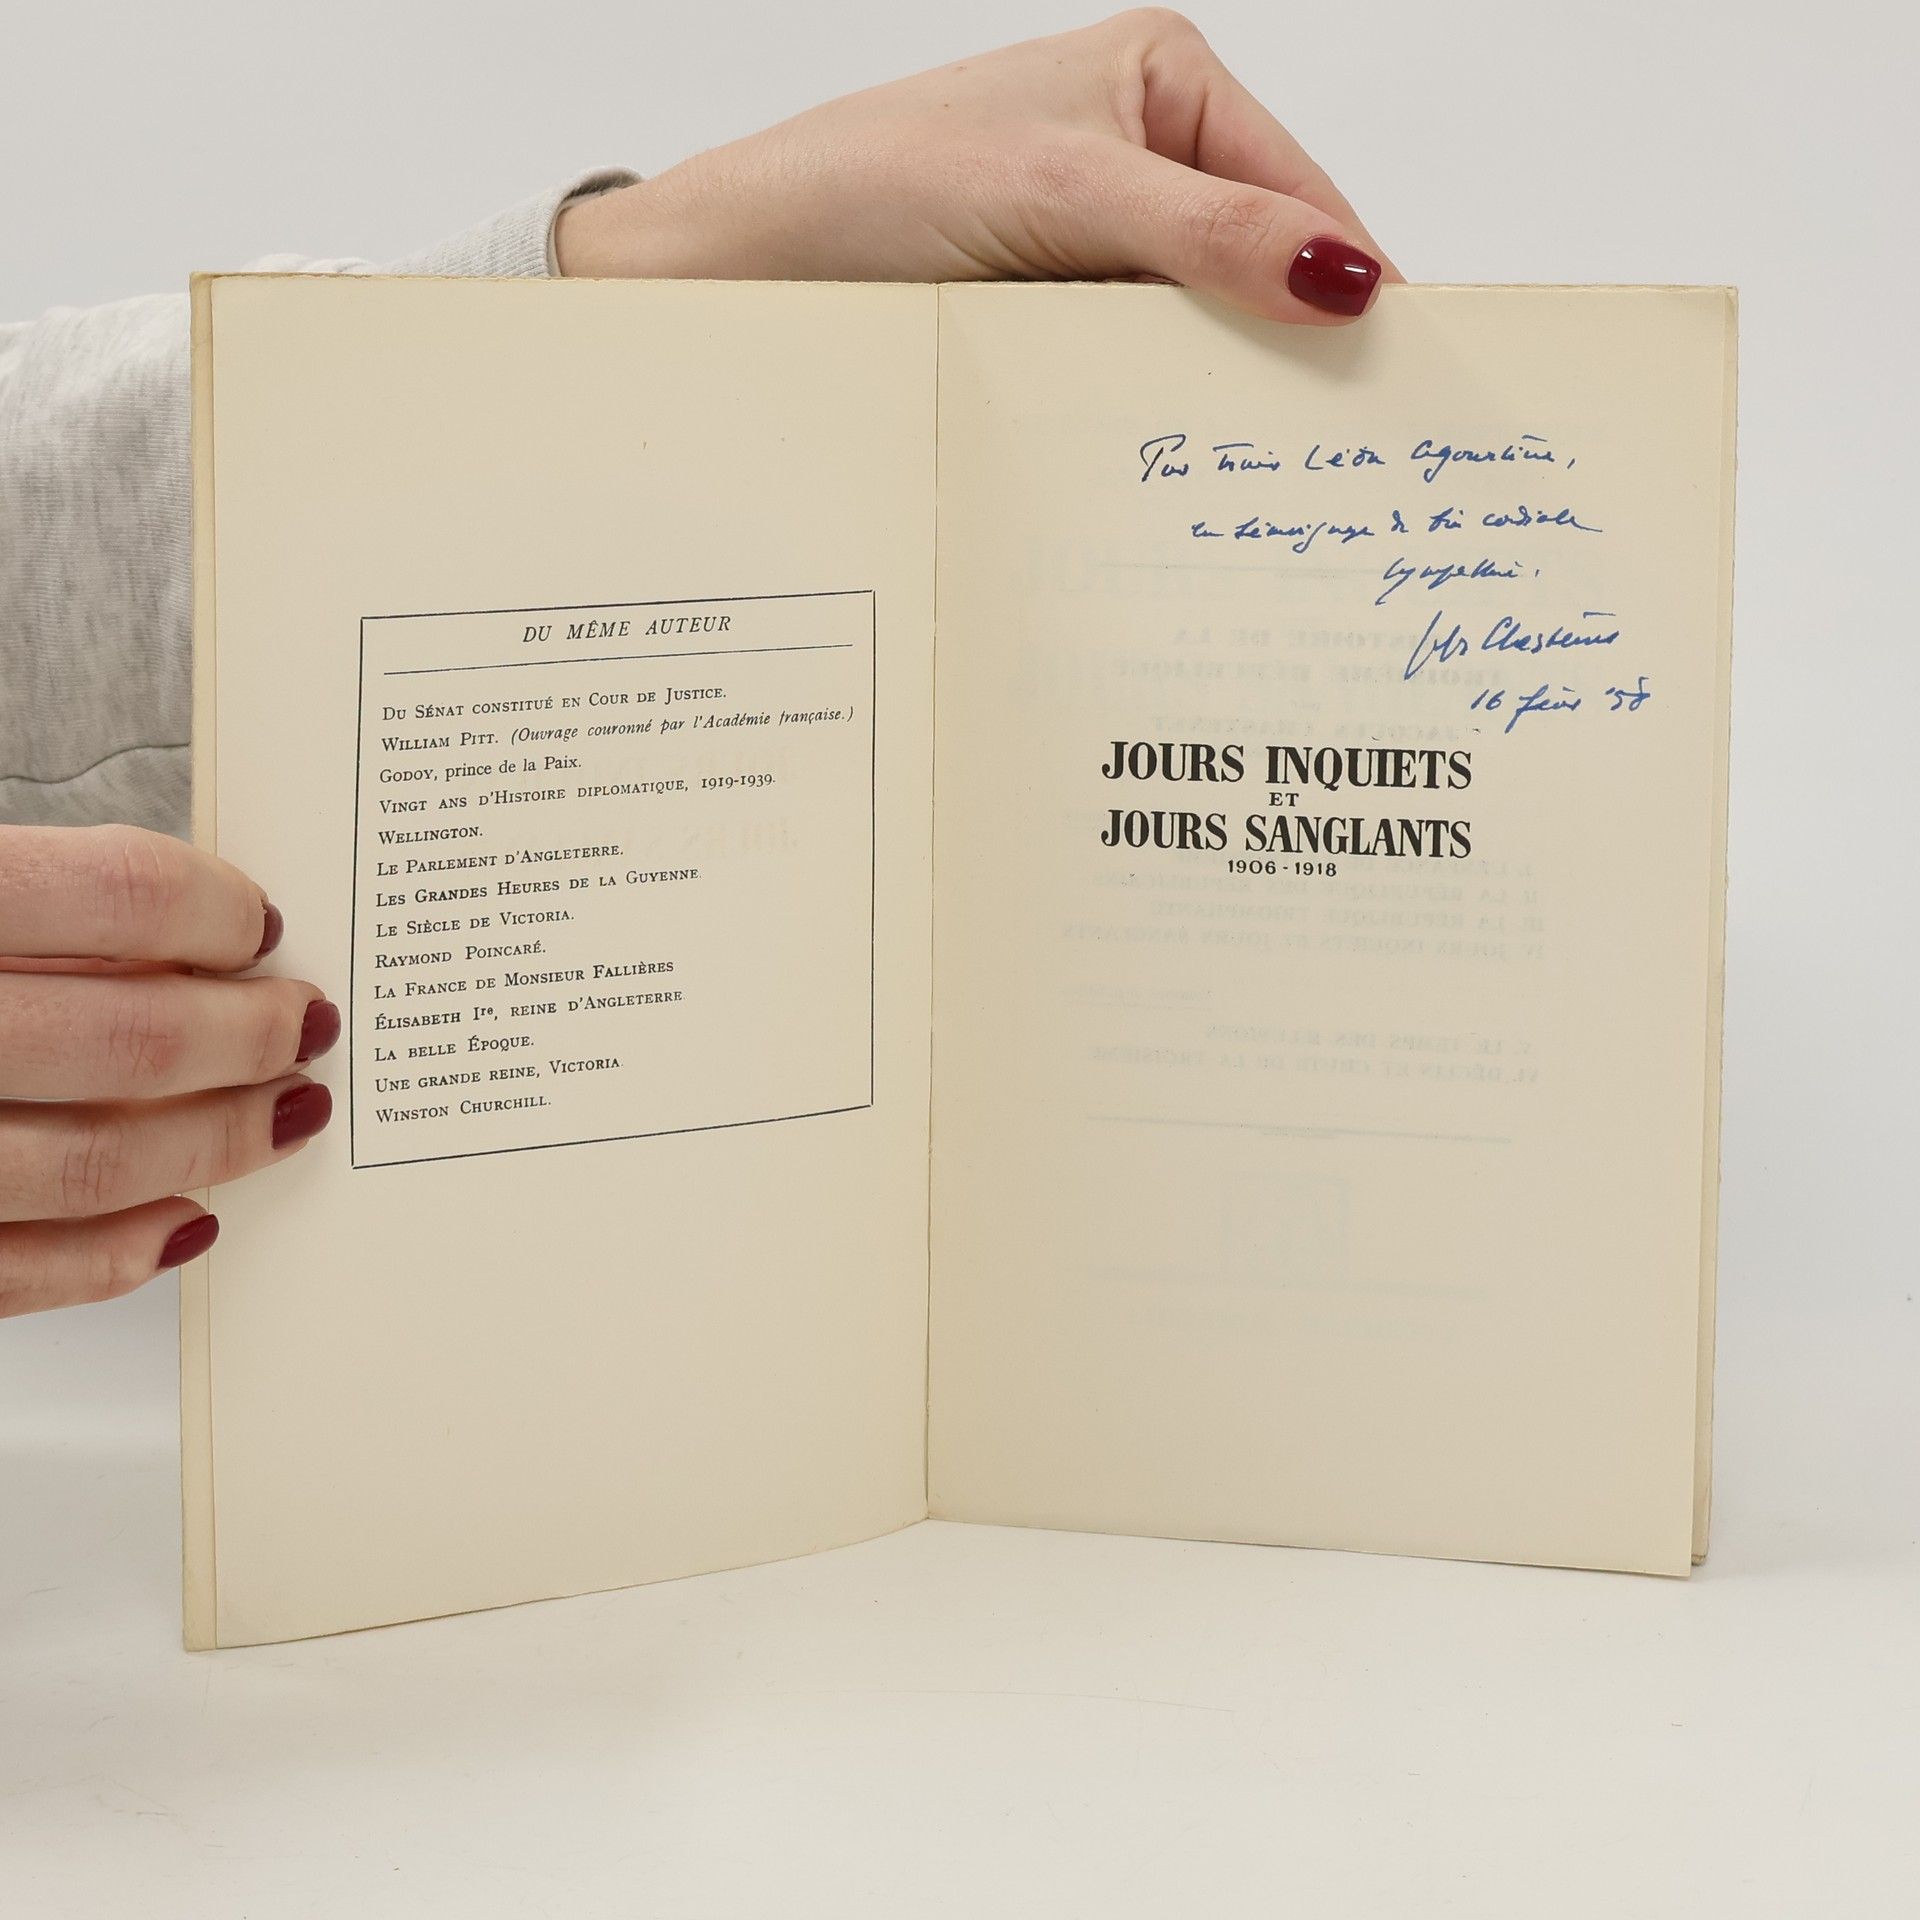 DU MÊME AUTEUR
DU SÉNAT CONSTITUÉ EN COUR DE JUSTICE.
WILLIAM PITT. (Ouvrage couronné par l'Académie française.)
GODOY, prince de la Paix.
VINGT ANS D'HISTOIRE DIPLOMATIQUE, 1919-1939.
WELLINGTON.
LE PARLEMENT D'ANGLETERRE.
LES GRANDES HEURES DE LA GUYENNE.
LE SIÈCLE DE VICTORIA.
RAYMOND POINCARÉ.
LA FRANCE DE MONSIEUR FALLIÈRES
ÉLISABETH Ire, REINE D'ANGLETERRE
LA BELLE ÉPOQUE.
UNE GRANDE REINE, VICTORIA.
WINSTON CHURCHILL.
Léon
en témoignage de bien cordiale
sympathie.
Chastenet
16 févr '58
JOURS INQUIETS
ET
JOURS SANGLANTS
1906-1918